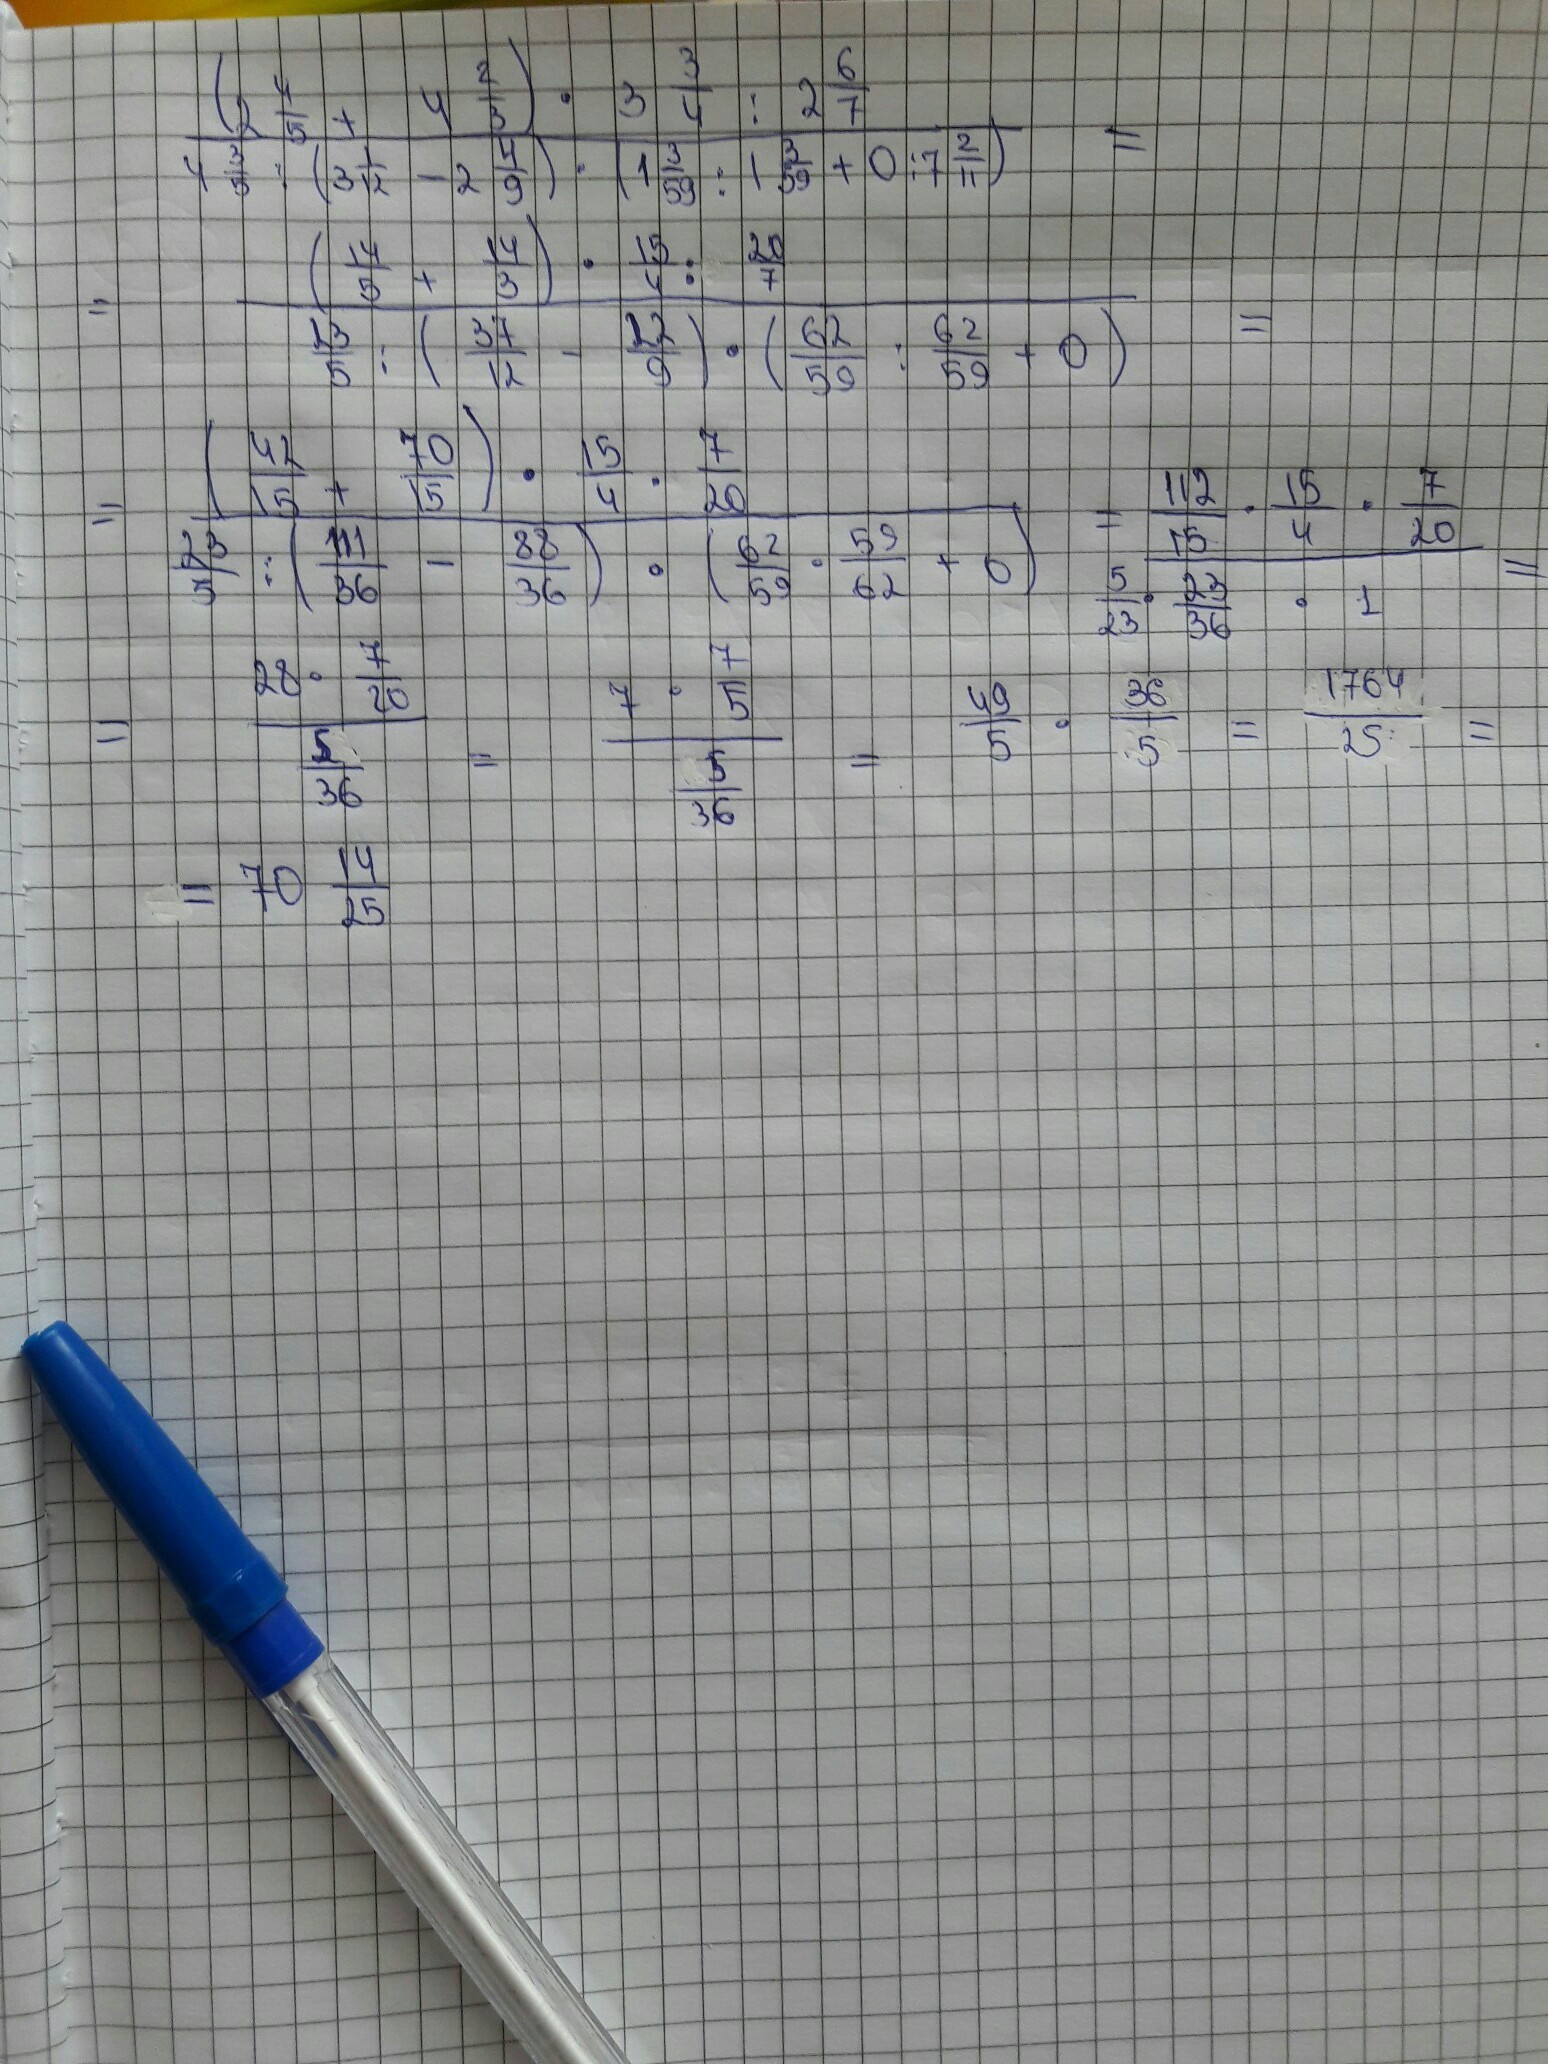 (2 4/5 + 4 2/3) · 3 3/4 : 2 6/7
4 3/5 : (3 1/12 - 2 4/9) · (1 3/59 : 1 3/59 + 0 : 7 2/11) =
= (14/5 + 14/3) · 15/4 : 20/7
23/5 : (37/12 - 22/9) · (62/59 : 62/59 + 0) =
= (42/15 + 70/15) · 15/4 · 7/20 = 112/15 · 15/4 · 7/20
23/5 : (111/36 - 88/36) · (62/59 · 59/62 + 0) 5/23 · 23/36 · 1 =
= 28 · 7/20 / 5/36 = 7 · 7/5 / 5/36 = 49/5 · 36/5 = 1764/25 =
= 70 14/25